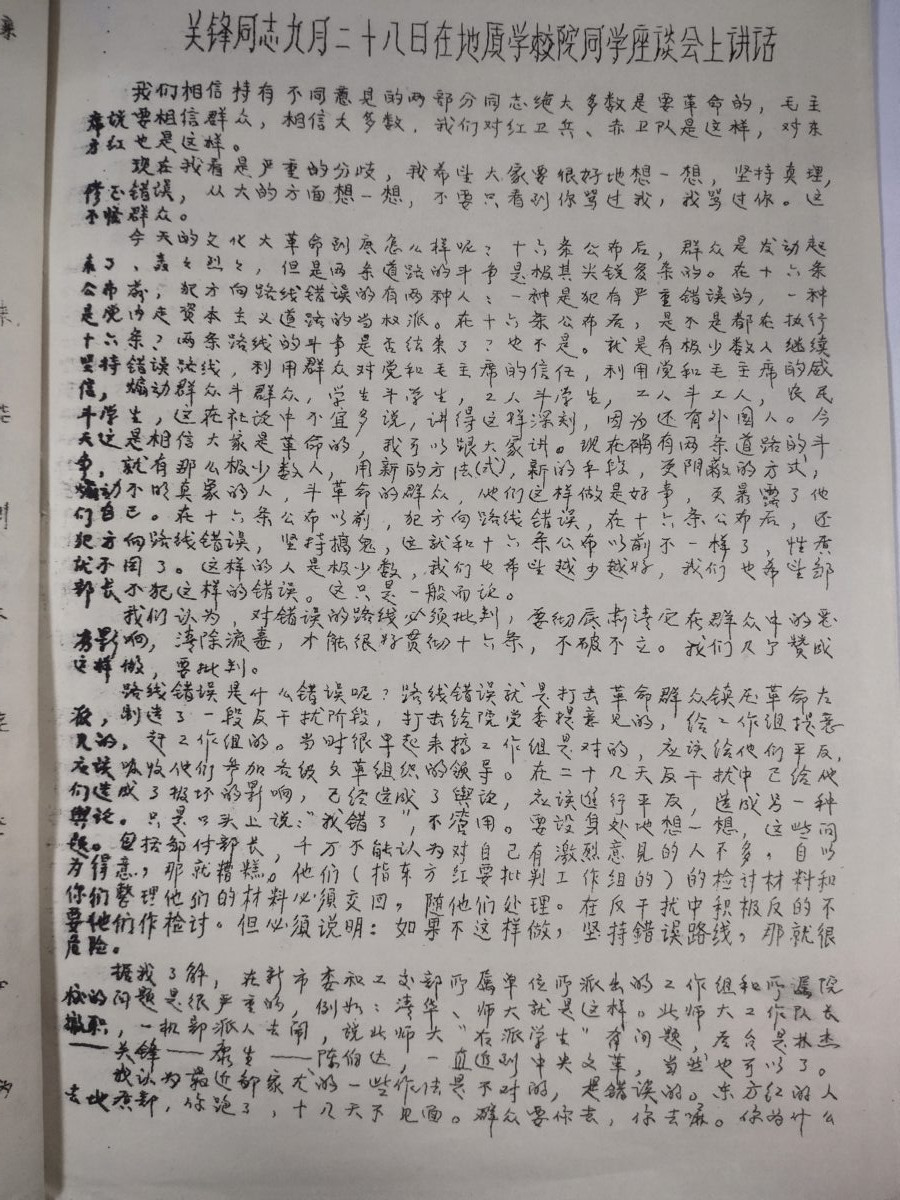 关锋同志九月二十八日在地质学校院同学座谈会上讲话
我们相信持有不同意见的两部分同志绝大多数是要革命的，毛主
席说要相信群众，相信大多数，我们对红卫兵、赤卫队是这样，对东
方红也是这样。
现在我看是严重的分歧，我希望大家要很好地想一想，坚持真理，
修正错误，从大的方面想一想，不要只看到你骂过我，我骂过你。这
不怪群众。
今天的文化大革命到底怎么样呢？十六条公布后，群众是发动起
来了，轰々烈々，但是两条道路的斗争是极其尖锐复杂的。在十六条
公布前，犯方向路线错误的有两种人：一种是犯有严重错误的，一种
是党内走资本主义道路的当权派。在十六条公布后，是不是都在执行
十六条？两条路线的斗争是否结束了？也不是。就是有极少数人继续
坚持错误路线，利用群众对党和毛主席的信任，利用党和毛主席的威
信，煽动群众斗群众，学生斗学生，工人斗学生，工人斗工人，农民
斗学生，这在社论中不宜多说，讲得这样深刻，因为还有外国人。今
天这是相信大家是革命的，我可以跟大家讲。现在确有两条道路的斗
争，就有那么极少数人，用新的方法(式)，新的手段，更阴蔽的方式，
煽动不明真象的人，斗革命的群众，他们这样做是好事，更暴露了他
们自己。在十六条公布以前，犯方向路线错误，在十六条公布后，还
犯方向路线错误，坚持搞鬼，这就和十六条公布以前不一样了，性质
就不同了。这样的人是极少数，我们也希望越少越好，我们也希望邹
部长不犯这样的错误。这只是一般而论。
我们认为，对错误的路线必须批判，要彻底肃清它在群众中的恶
劣影响，清除流毒，才能很好贯彻十六条，不破不立。我们几个赞成
这样做，要批判。
路线错误是什么错误呢？路线错误就是打击革命群众镇压革命左
派，制造了一段反干扰阶段，打击给院党委提意见的，给工作组提意
见的，赶工作组的。当时很早起来搞工作组是对的，应该给他们平反，
应该吸收他们参加各级文革组织的领导。在二十几天反干扰中已给他
们造成了极坏的影响，已经造成了舆论，应该进行平反，造成另一种
舆论。只是口头上说："我错了"，不管用。要设身处地想一想，这些问
题。包括邹付部长，千万不能认为对自己有激烈意见的人不多，自以
为得意，那就糟糕。他们（指东方红要批判工作组的）的检讨材料和
你们整理他们的材料必须交回，随他们处理。在反干扰中积极反的不
要他们作检讨。但必须说明：如果不这样做，坚持错误路线，那就很
危险。
据我了解，在新市委和工交部所属单位所派出的工作组和所属院
校的问题是很严重的，例如：清华、师大就是这样。此师大工作队长
撤职，一机部派人去闹，说此师大"右派学生"有问题，后台是林杰
——关锋——康生——陈伯达，一直追到中央文革，当然也可以了。
我认为最近邹家尤的一些作法是不对的，是错误的。东方红的人
去地质部，你跑了，十几天不见面。群众要你去，你去嘛。你为什么